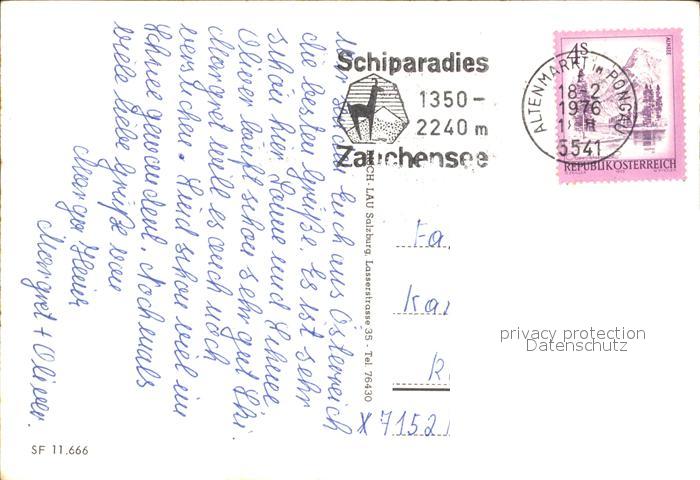 Wir senden Euch aus Österreich
die besten Grüße. Es ist sehr
schön hier. Sonne und Schnee
Oliver läuft schon sehr gut Ski.
Margret will es auch noch
versuchen. Sind schon viel im
Schnee gewandert. Nochmals
viele liebe Grüße von
Margret + Oliver.
Schiparadies
1350 -
2240 m
Zauchensee
ALTENMARKT im PONGAU
18.-2
1976
5541
4S
ALMSEE
REPUBLIK ÖSTERREICH
LAU Salzburg, Lasserstrasse 35 - Tel. 76430
Fa
Ka
X 7152
privacy protection
Datenschutz
SF 11.666